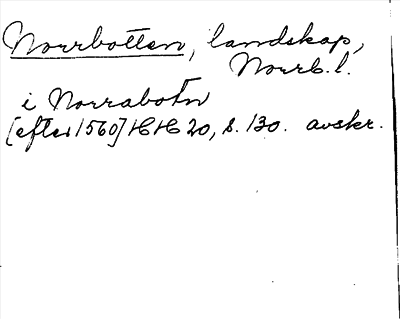 Norrbotten, landskap,
Norrb. l.
i Norrabotn
[efter 1560] HH 20, s. 130. avskr.